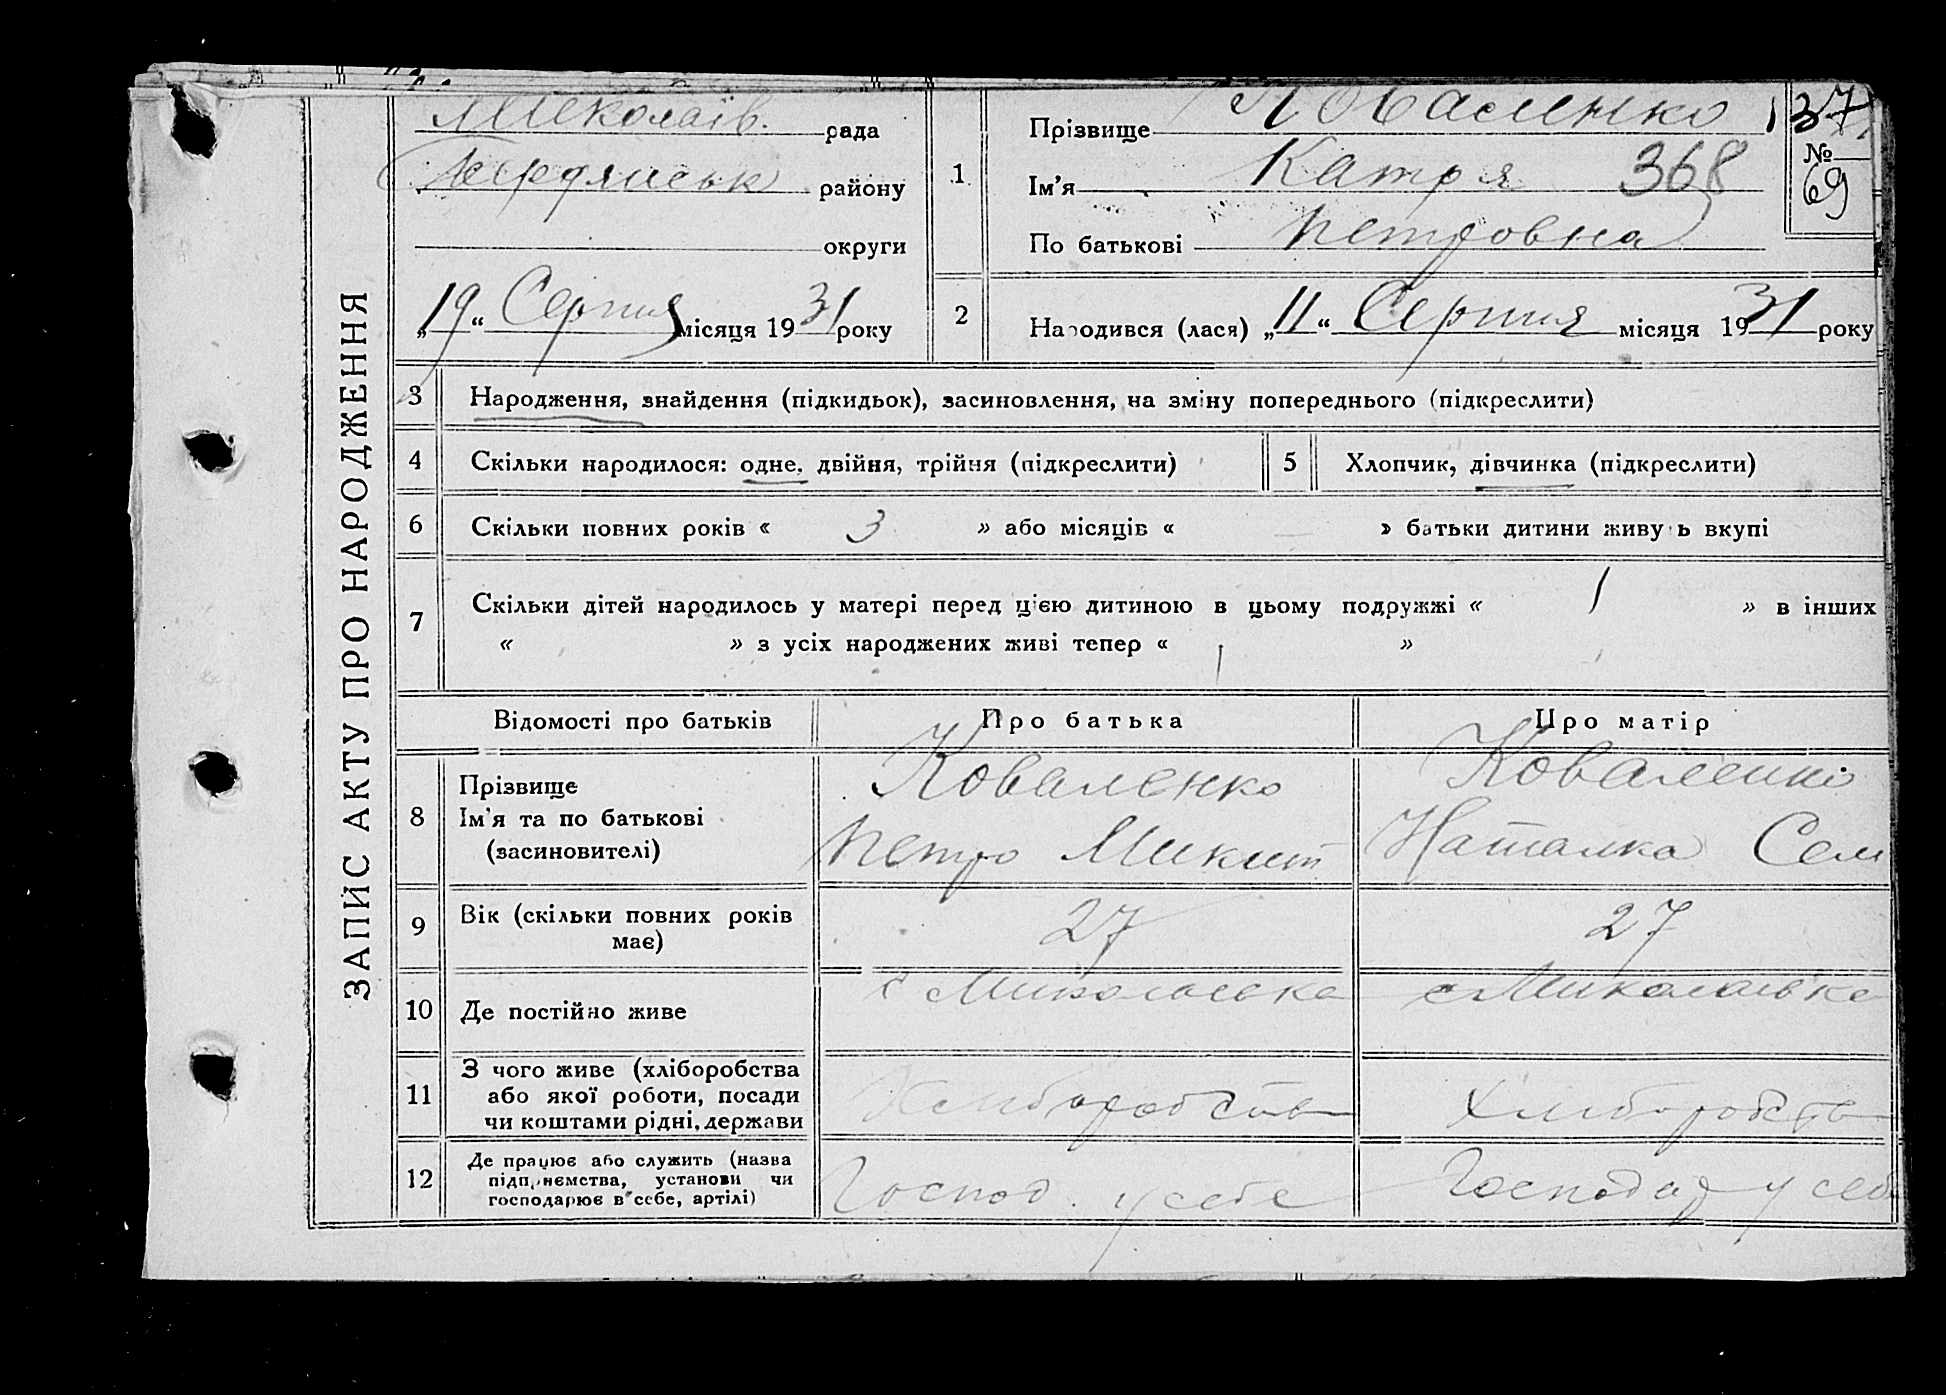 ЗАПИС АКТУ ПРО НАРОДЖЕННЯ
Миколаїв. рада
Бердянськ району
округи
„19“ Серпня місяця 1931 року
1
Прізвище Коваленко
Ім'я Катря 368
По батькові Петровна
137
№
69
2
Народився (лася) „11“ Серпня місяця 1931 року
3 Народження, знайдення (підкидьок), засиновлення, на зміну попереднього (підкреслити)
4 Скільки народилося: одне, двійня, трійня (підкреслити)
5 Хлопчик, дівчинка (підкреслити)
6 Скільки повних років « 3 » або місяців « — » батьки дитини живуть вкупі
7 Скільки дітей народилось у матері перед цією дитиною в цьому подружжі « 1 » в інших
« » з усіх народжених живі тепер « 1 »
Відомості про батьків Про батька Про матір
8 Прізвище
Ім'я та по батькові
(засиновителі)
Коваленко
Петро Микит
Коваленко
Наталка Сем
9 Вік (скільки повних років
має)
27
27
10 Де постійно живе
с Миколаевка
с Миколаевка
11 З чого живе (хліборобства
або якої роботи, посади
чи коштами рідні, держави
Хліборобств
Хліборобств
12 Де працює або служить (назва
підприємства, установи чи
господарює в себе, артілі)
Господ. у себе
Господар у себе